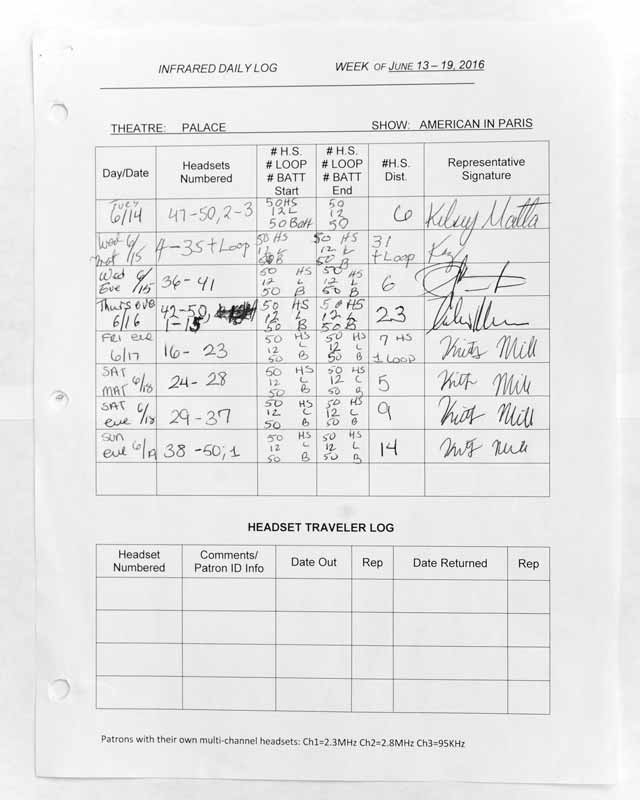 INFRARED DAILY LOG WEEK OF JUNE 13 – 19, 2016
THEATRE: PALACE SHOW: AMERICAN IN PARIS
Day/Date Headsets Numbered # H.S. # LOOP # BATT Start # H.S. # LOOP # BATT End #H.S. Dist. Representative Signature
Tues 6/14 47-50, 2-3 50 HS 12 L 50 Batt 50 12 50 6 Kelsey
Wed 6/15 mat 4-35 + Loop 50 HS 12 L 50 B 50 HS 12 L 50 B 31 + Loop
Wed 6/15 Eve 36-41 50 HS 12 L 50 B 50 HS 12 L 50 B 6
Thurs eve 6/16 42-50, 1-15 50 HS 12 L 50 B 50 HS 12 L 50 B 23
FRI eve 6/17 16-23 50 HS 12 L 50 B 50 HS 12 L 50 B 7 HS 1 LOOP Mill
SAT MAT 6/18 24-28 50 HS 12 L 50 B 50 HS 12 L 50 B 5 Mill
SAT eve 6/18 29-37 50 HS 12 L 50 B 50 HS 12 L 50 B 9 Mill
SUN eve 6/19 38-50; 1 50 HS 12 L 50 B 50 HS 12 L 50 B 14 Mill
HEADSET TRAVELER LOG
Headset Numbered Comments/ Patron ID Info Date Out Rep Date Returned Rep
Patrons with their own multi-channel headsets: Ch1=2.3MHz Ch2=2.8MHz Ch3=95KHz